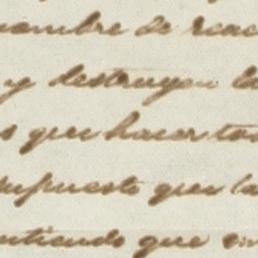 nombre de reac
y destruyen la
s que hacer tos
supuesto que la
ntiendo que